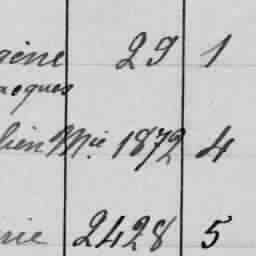 gène 29 1
acques
lien Mie 1872 4
rie 2428 5